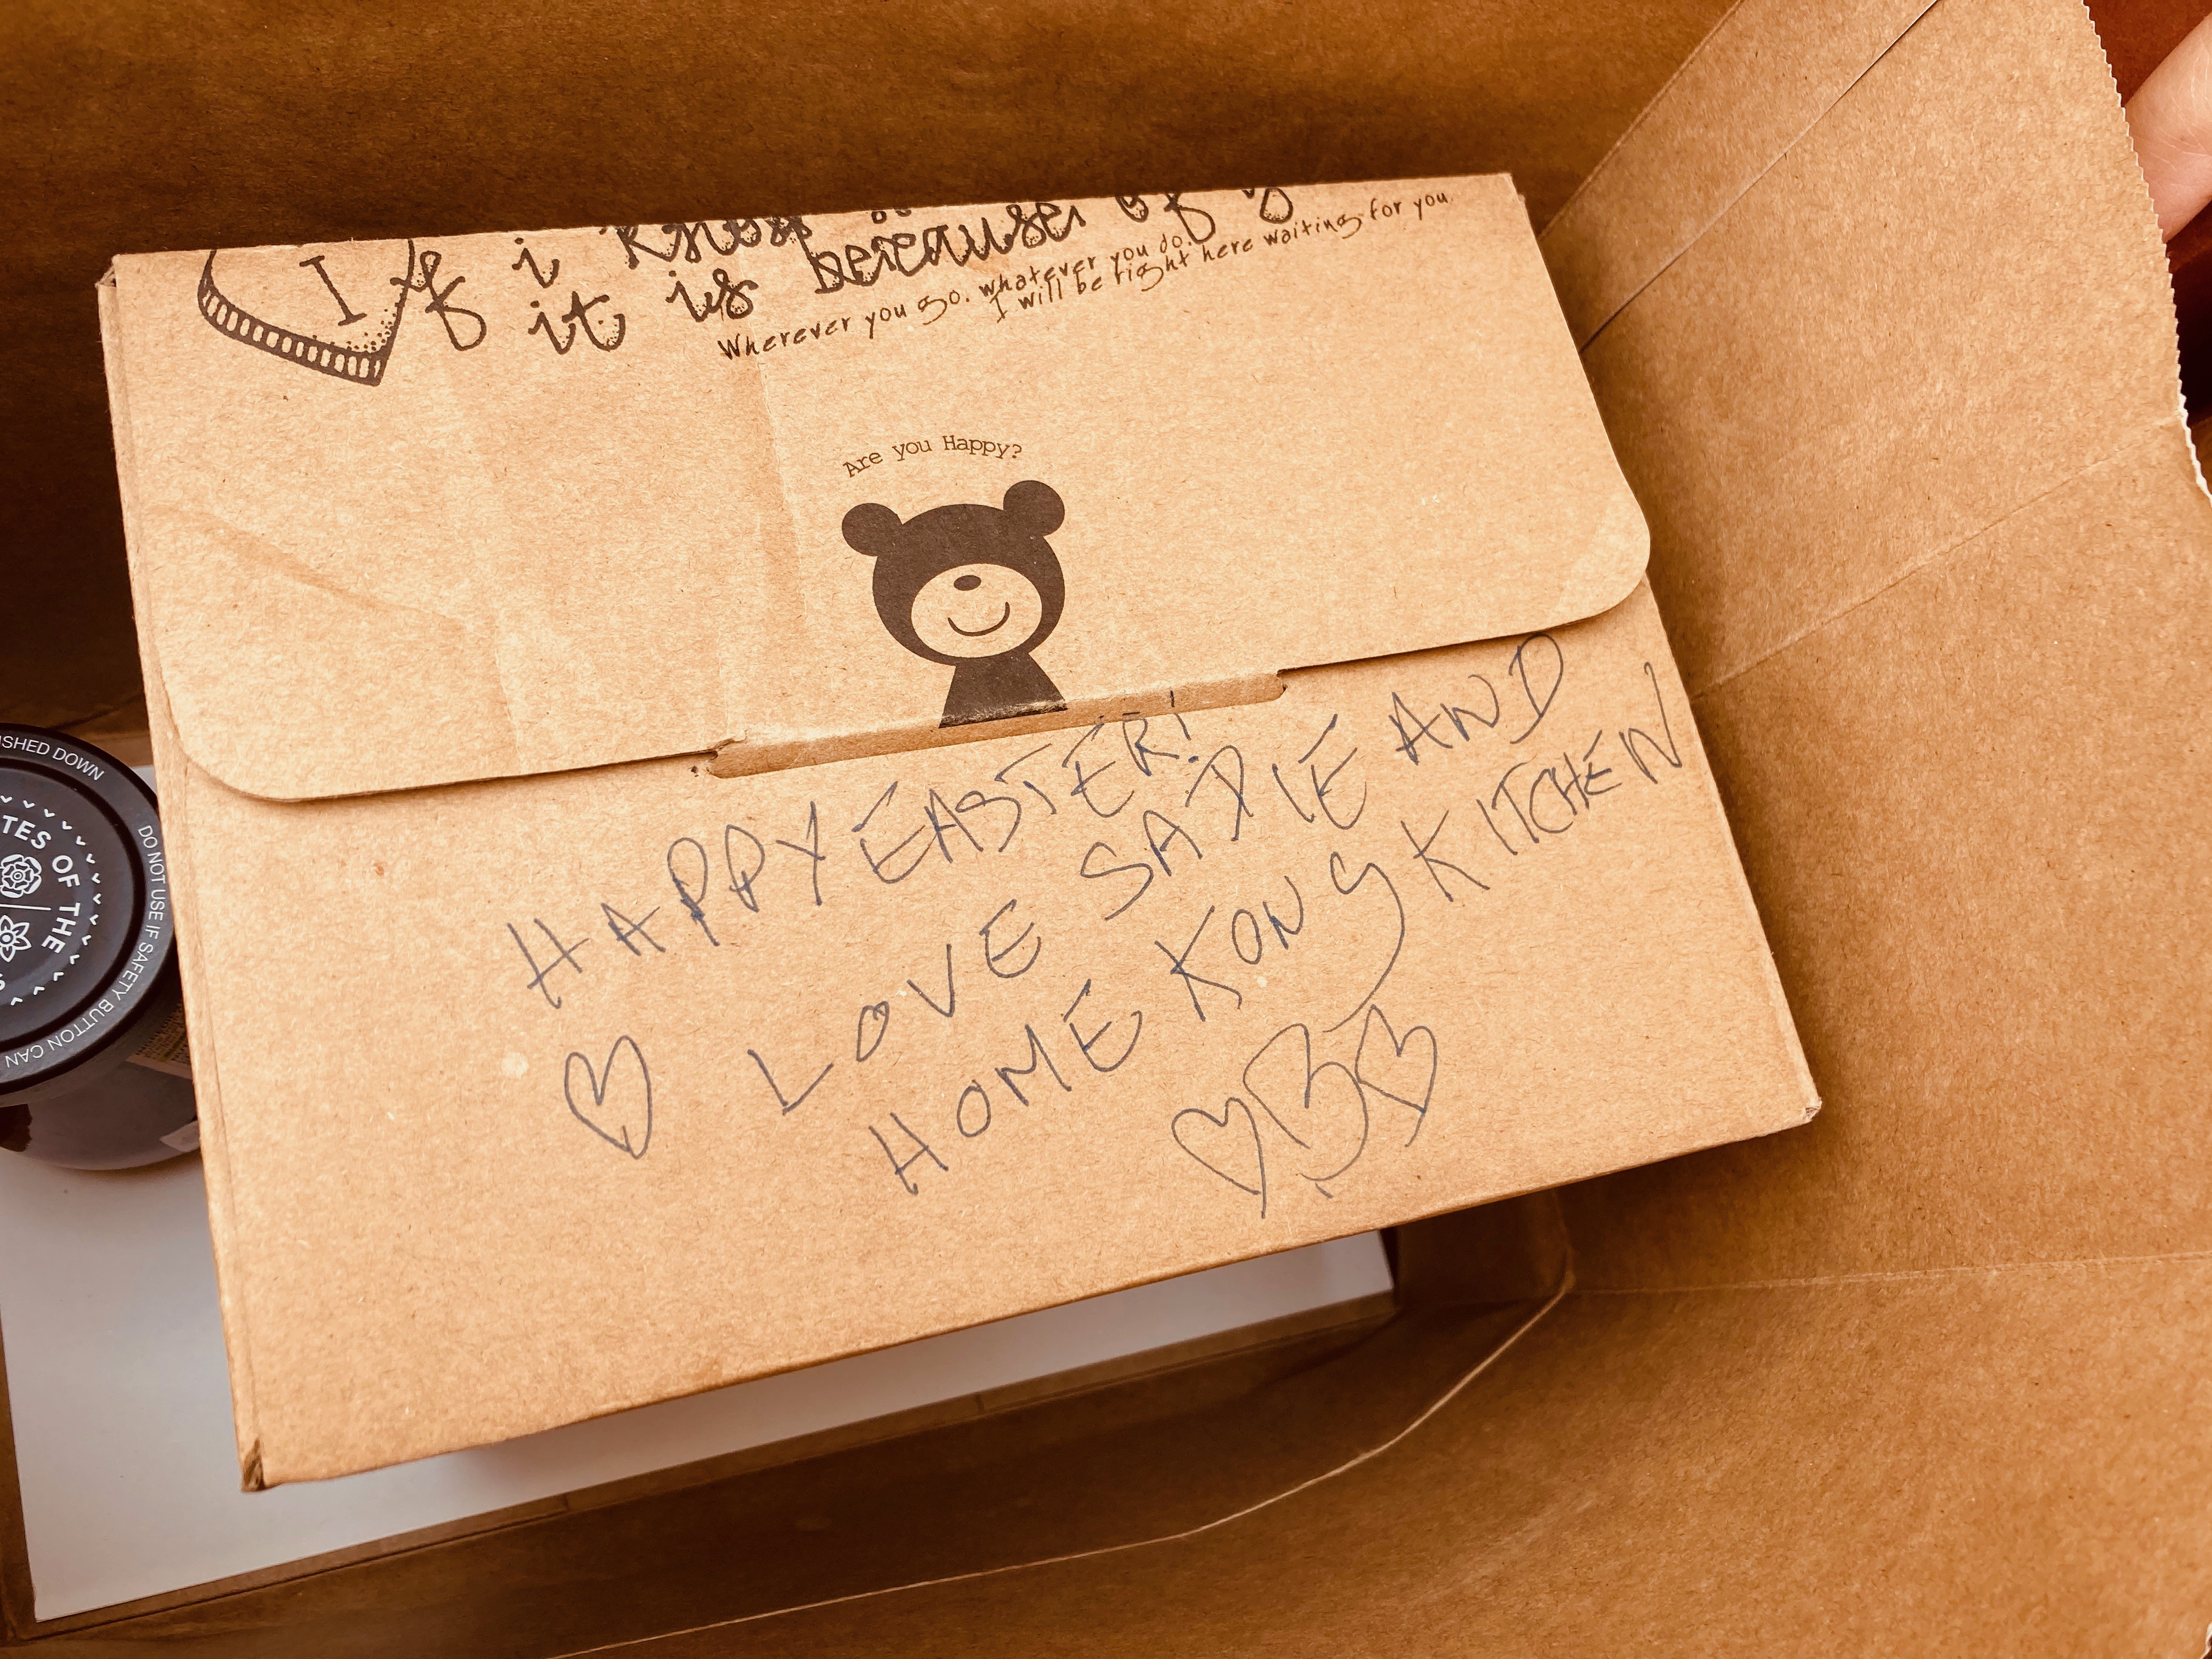 I
If i know
it is because of
Wherever you go. whatever you do.
I will be right here waiting for you
Are you Happy?
HAPPY EASTER!
LOVE SADIE AND
HOME KONG KITCHEN
OF THE
DO NOT USE IF SAFETY BUTTON CAN
DOWN